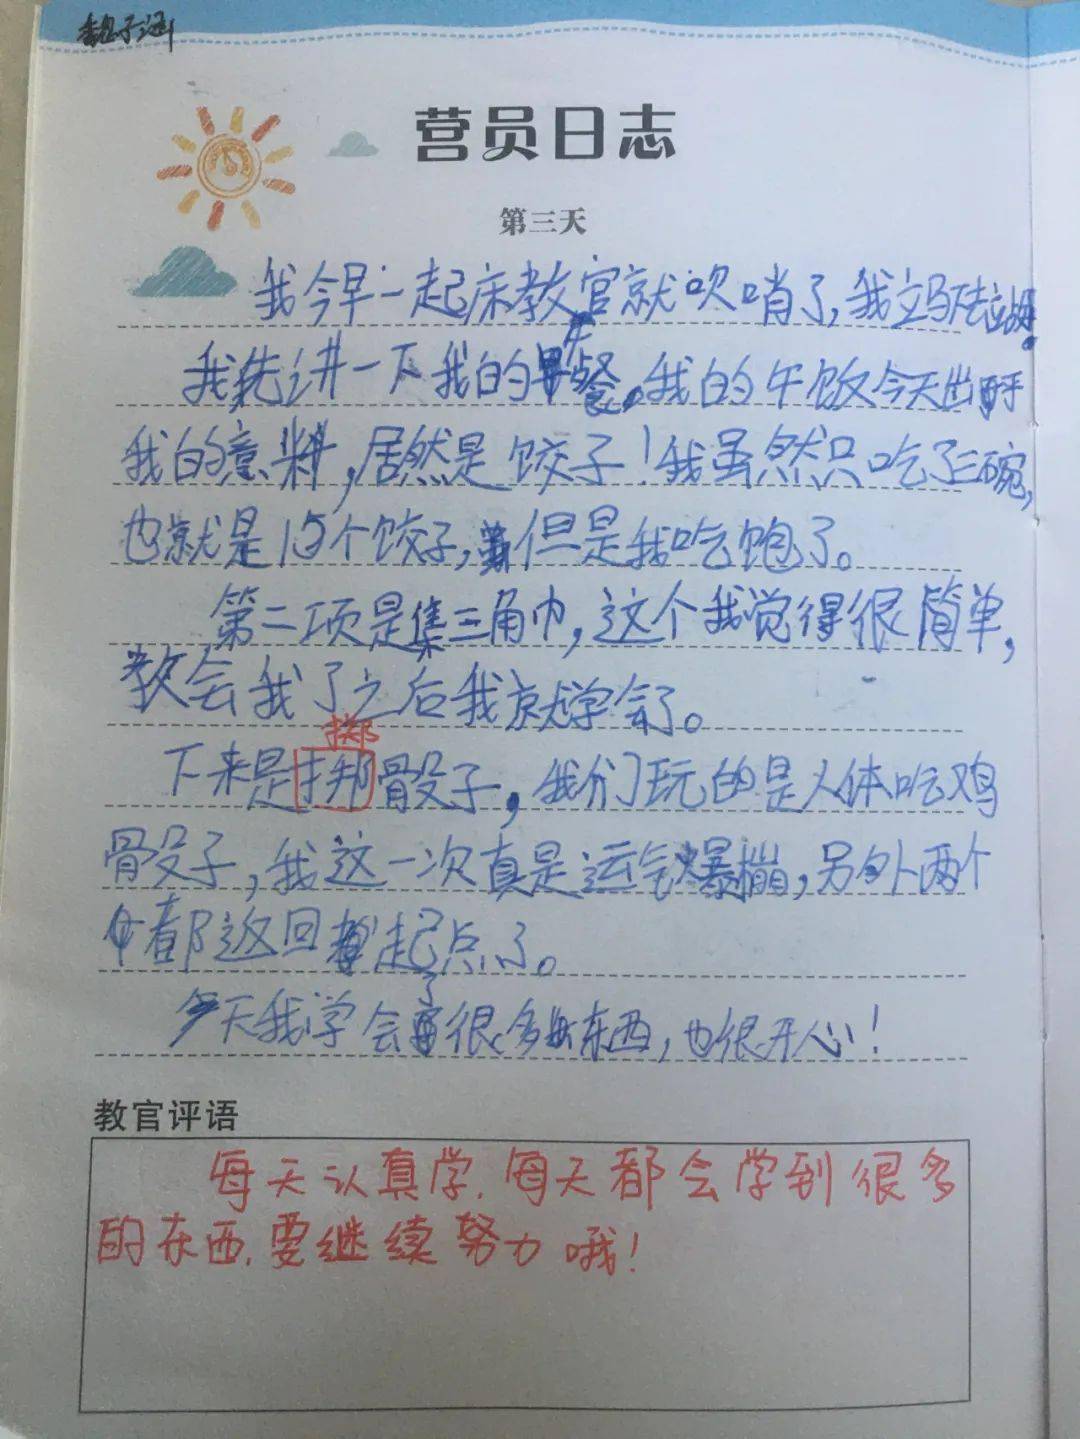 魏子涵
营员日志
第三天
我今早一起床教官就吹哨了,我立马去
我先讲一下我的午餐。我的午饭今天出乎
我的意料,居然是饺子!我虽然只吃了三碗,
也就是15个饺子,但是我吃饱了。
第二项是集三角巾,这个我觉得很简单,
教会我了之后我就学会了。
掷
下来是骨殳子,我们玩的是人体吃鸡
骨殳子,我这一次真是运气爆棚,另外两个
都返回起点了。
今天我学会了很多东西,也很开心!
教官评语
每天认真学,每天都会学到很多
的东西,要继续努力哦!